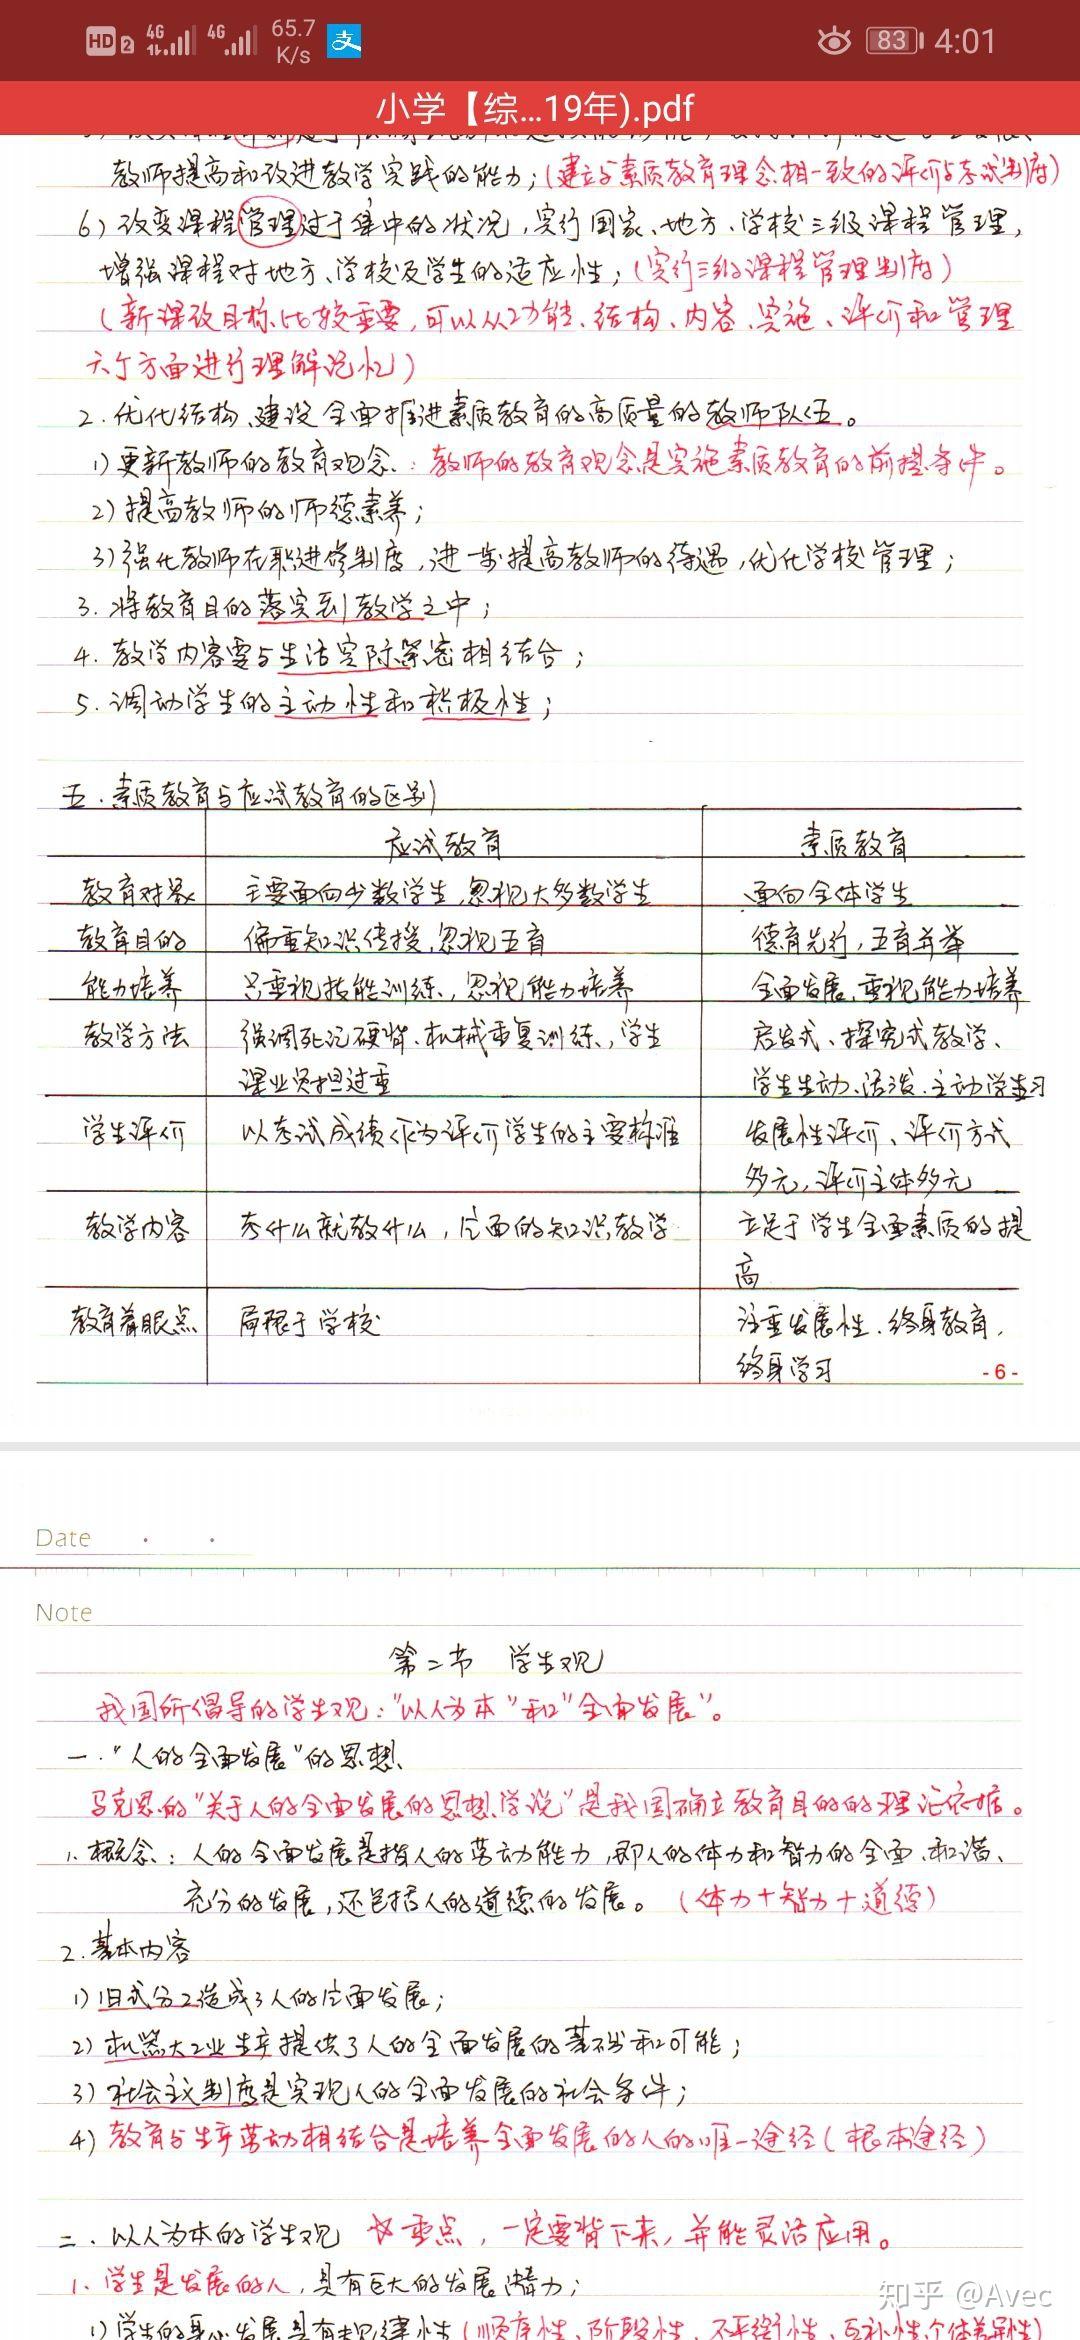 HD 2 4G 4G 65.7 K/s 支 83 4:01
小学【综...19年).pdf
教师提高和改进教学实践的能力;(建立与素质教育理念相一致的评价与考试制度)
6) 改变课程管理过于集中的状况,实行国家、地方、学校三级课程管理,
增强课程对地方、学校及学生的适应性;(实行三级课程管理制度)
(新课改目标比较重要,可以从功能、结构、内容、实施、评价和管理
六个方面进行理解记忆)
2.优化结构、建设全面推进素质教育的高质量的教师队伍。
1) 更新教师的教育观念:教师的教育观念是实施素质教育的前提条件。
2) 提高教师的师德素养;
3) 强化教师在职进修制度,进一步提高教师的待遇,优化学校管理;
3. 将教育目的落实到教学之中;
4. 教学内容要与生活实际紧密相结合;
5. 调动学生的主动性和积极性;
五.素质教育与应试教育的区别
应试教育 素质教育
教育对象 主要面向少数学生,忽视大多数学生 面向全体学生
教育目的 偏重知识传授,忽视五育 德育先行,五育并举
能力培养 只重视技能训练,忽视能力培养 全面发展,重视能力培养
教学方法 强调死记硬背、机械重复训练,学生 启发式、探究式教学、
课业负担过重 学生生动、活泼、主动学习
学生评价 以考试成绩作为评价学生的主要标准 发展性评价、评价方式
多元,评价主体多元
教学内容 考什么就教什么,片面的知识教学 立足于学生全面素质的提
高
教育着眼点 局限于学校 注重发展性、终身教育,
终身学习 -6-
Date
Note
第二节 学生观
我国所倡导的学生观:"以人为本"和"全面发展"。
一."人的全面发展"的思想
马克思的"关于人的全面发展的思想学说"是我国确立教育目的的理论依据。
1. 概念:人的全面发展是指人的劳动能力,即人的体力和智力的全面、和谐、
充分的发展,还包括人的道德的发展。(体力+智力+道德)
2.基本内容
1) 旧式分工造成了人的片面发展;
2) 机器大工业生产提供了人的全面发展的基础和可能;
3) 社会主义制度是实现人的全面发展的社会条件;
4) 教育与生产劳动相结合是培养全面发展的人的唯一途径(根本途径)
二.以人为本的学生观 重点,一定要背下来,并能灵活应用。
1. 学生是发展的人,具有巨大的发展潜力;
知乎 @Avec
1) 学生的身心发展具有规律性(顺序性、阶段性、不平衡性、互补性、个体差异性)